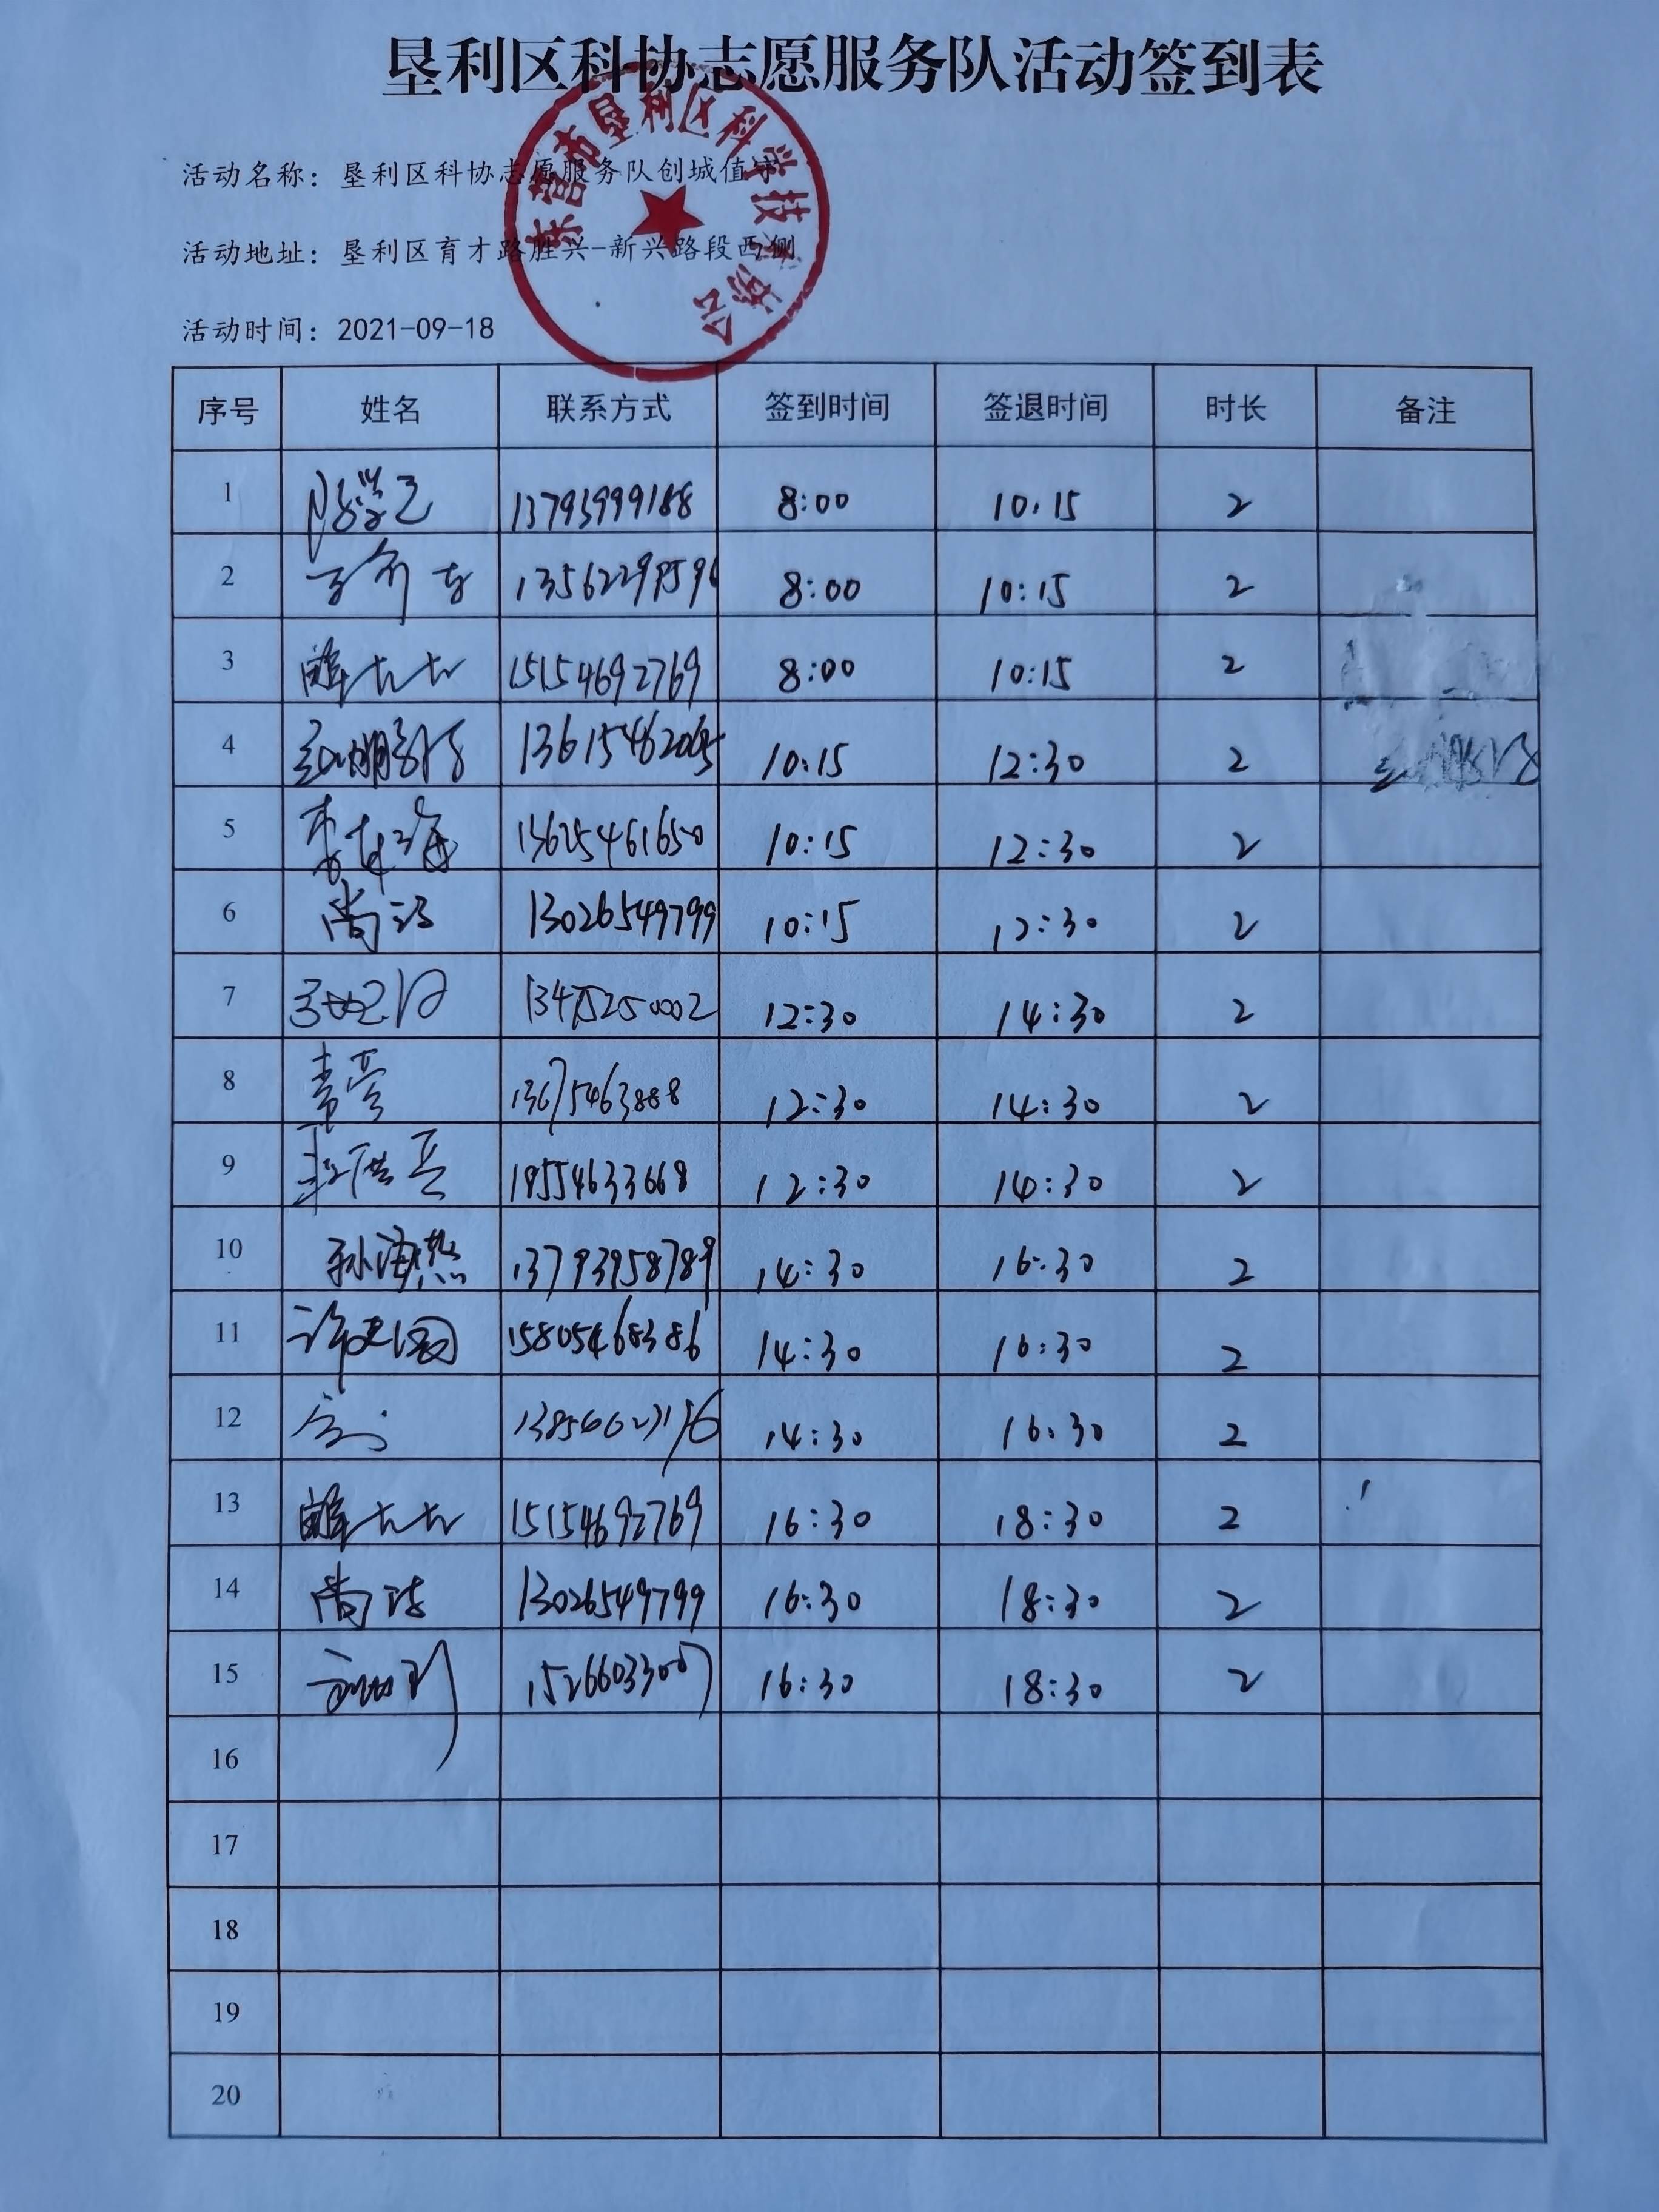 垦利区科协志愿服务队活动签到表
东营市垦利区科学技术协会
活动名称：垦利区科协志愿服务队创城值守
活动地址：垦利区育才路胜兴-新兴路段西侧
活动时间：2021-09-18
序号 姓名 联系方式 签到时间 签退时间 时长 备注
1 13793999188 8:00 10:15 2
2 8:00 10:15 2
3 15154692769 8:00 10:15 2
4 10:15 12:30 2
5 13625461650 10:15 12:30 2
6 尚洁 13026549799 10:15 12:30 2
7 13475250002 12:30 14:30 2
8 13675463888 12:30 14:30 2
9 18554633668 12:30 14:30 2
10 孙海燕 13793958789 14:30 16:30 2
11 许建国 15805468386 14:30 16:30 2
12 14:30 16:30 2
13 15154692769 16:30 18:30 2
14 尚洁 13026549799 16:30 18:30 2
15 15266033007 16:30 18:30 2
16
17
18
19
20